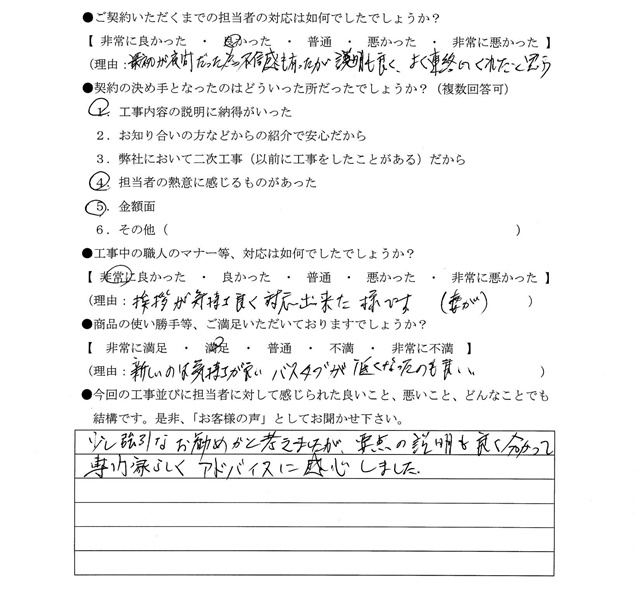 ●ご契約いただくまでの担当者の対応は如何でしたでしょうか？
【 非常に良かった ・ 良かった ・ 普通 ・ 悪かった ・ 非常に悪かった 】
(理由：最初が夜間だった為不信感も有ったが 説明も良く、よく連絡してくれたと思う
●契約の決め手となったのはどういった所だったでしょうか？（複数回答可）
1．工事内容の説明に納得がいった
2．お知り合いの方などからの紹介で安心だから
3．弊社において二次工事（以前に工事をしたことがある）だから
4．担当者の熱意に感じるものがあった
5．金額面
6．その他（ ）
●工事中の職人のマナー等、対応は如何でしたでしょうか？
【 非常に良かった ・ 良かった ・ 普通 ・ 悪かった ・ 非常に悪かった 】
(理由：挨拶が気持ち良く対応出来た様です （妻が） )
●商品の使い勝手等、ご満足いただいておりますでしょうか？
【 非常に満足 ・ 満足 ・ 普通 ・ 不満 ・ 非常に不満 】
(理由：新しいのは気持ちが良い バスタブが低くなったのも良い。 )
●今回の工事並びに担当者に対して感じられた良いこと、悪いこと、どんなことでも
結構です。是非、「お客様の声」としてお聞かせ下さい。
少し強引なお勧めかと考えましたが、要点の説明も良く分かって
専門家らしくアドバイスに感心しました。